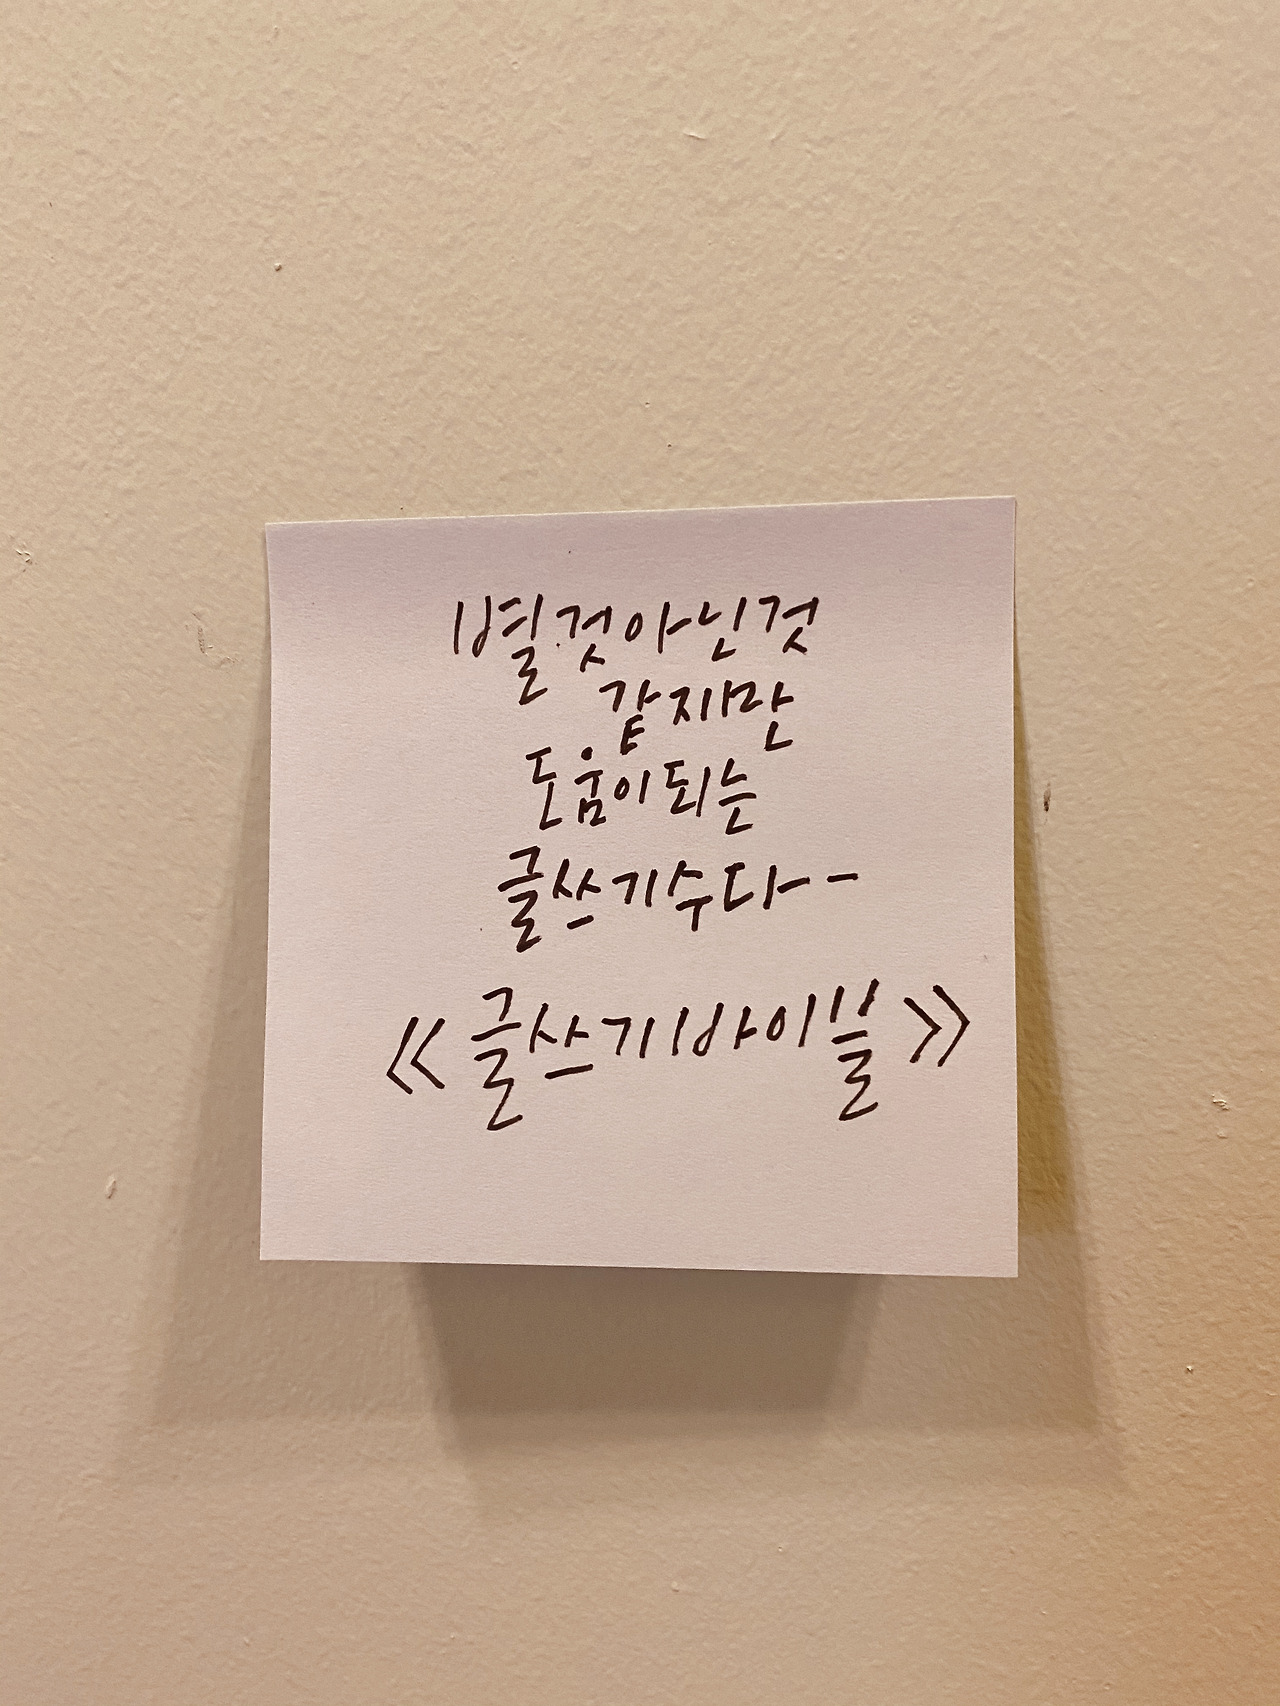 별것아닌것
같지만
도움이되는
글쓰기수다--
《글쓰기바이블》